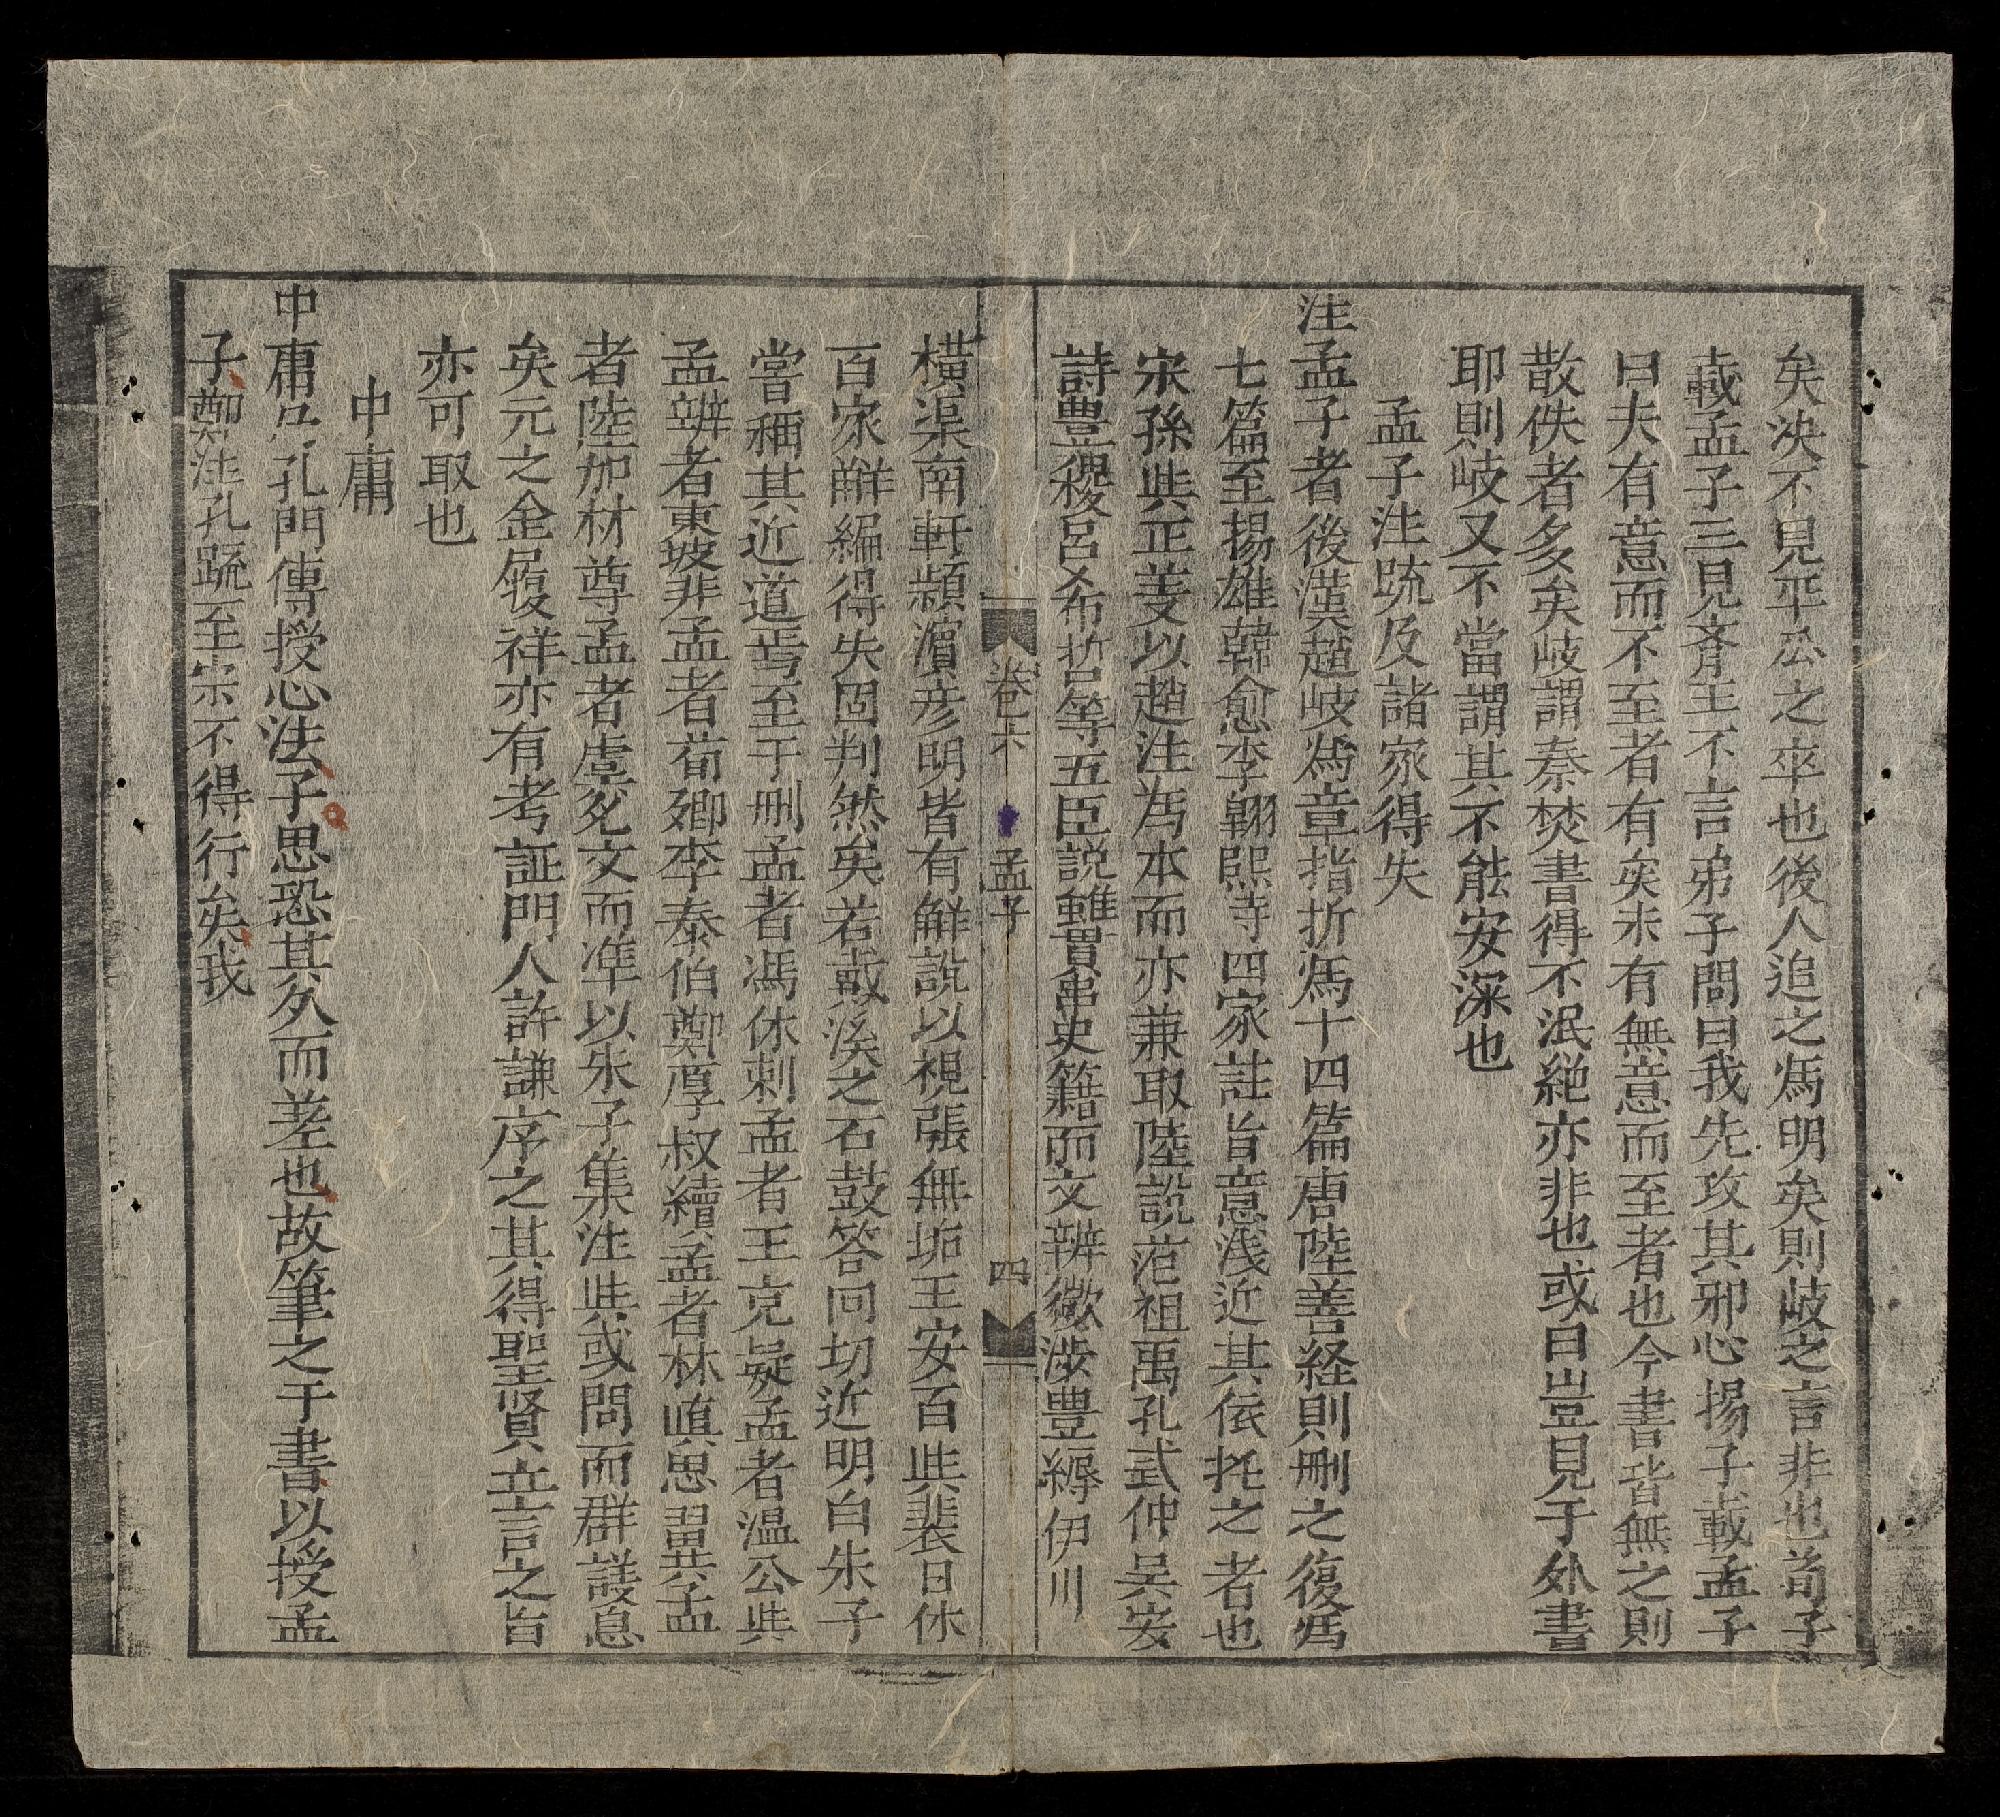 矣決不見平公之卒也後人追之爲明矣則岐之言非也荀子
載孟子三見齊王不言弟子問曰我先攻其邪心揚子載孟子
曰夫有意而不至者有矣未有無意而至者也今書皆無之則
散佚者多矣岐謂秦焚書得不泯絕亦非也或曰豈見于外書
耶則岐又不當謂其不能安深也
孟子注疏及諸家得失
注孟子者後漢趙岐爲章指折爲十四篇唐陸善経則刪之復爲
七篇至揚雄韓愈李翺熙寺四家註旨意淺近其依托之者也
宋孫奭正義以趙注爲本而亦兼取陸說范祖禹孔武仲吳安
詩豊稷呂希哲等五臣説雖貫串史籍而文辨徵涉豊縟伊川
卷六 孟子 四
橫渠南軒頴濵彦明皆有觧說以視張無垢王安百與裴日休
百家觧編得失固判然矣若戴溪之石鼓答問切近明白朱子
嘗稱其近道焉至于刪孟者馮休刺孟者王充疑孟者温公與
孟辨者東坡非孟者荀卿李泰伯鄭厚叔續孟者林慎思翼孟
者陸加材尊孟者虞允文而準以朱子集注與或問而群議息
矣元之金履祥亦有考証門人許謙序之其得聖賢立言之旨
亦可取也
中庸
中庸乃孔門傳授心法子思恐其久而差也故筆之于書以授孟
子鄭注孔疏至宗不得行矣我